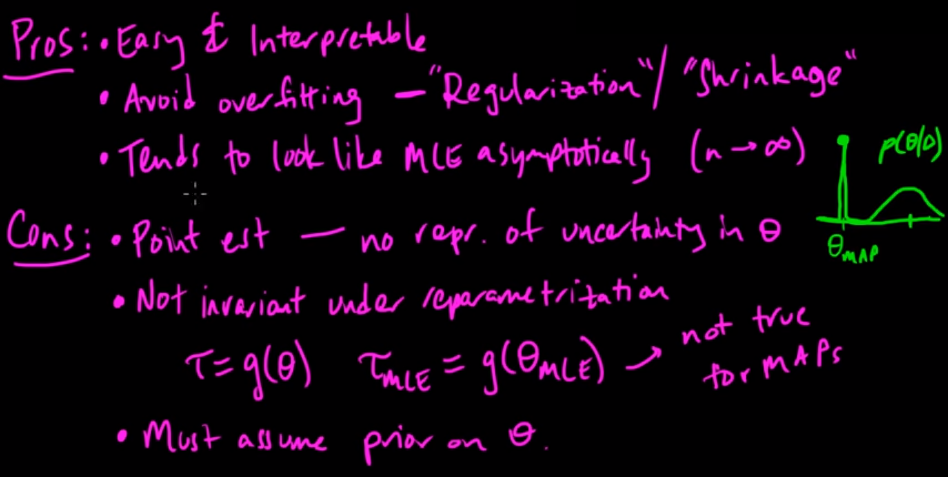 Pros: • Easy & Interpretable
• Avoid overfitting — "Regularization" / "Shrinkage"
• Tends to look like MLE asymptotically (n→∞)
p(θ|D)
θMAP
Cons: • Point est — no repr. of uncertainty in θ
• Not invariant under reparametrization
τ = g(θ) τMLE = g(θMLE) → not true for MAPs
• Must assume prior on θ.